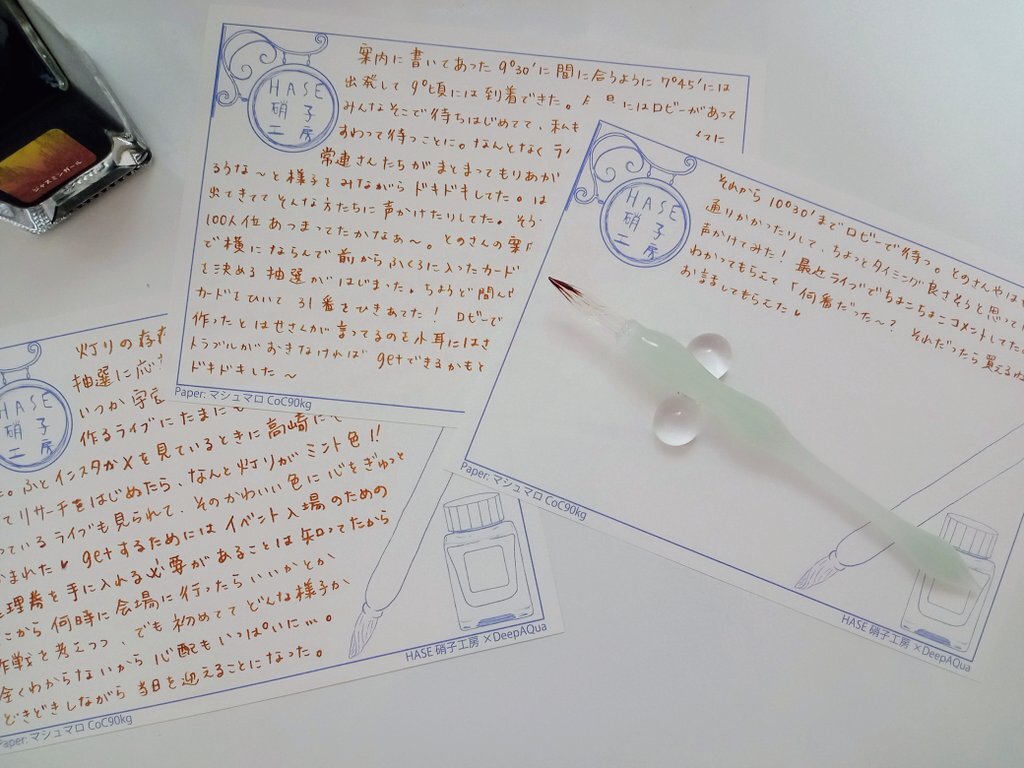 ジャスミンガール
HASE
硝子
工房
灯りの存在
抽選に応
いつか 宇
作るライブにたまに
ふとインスタかXを見ているときに高崎にて
ってリサーチをはじめたら、なんと灯りがミント色!!
っているライブも見られて、そのかわいい色に心をぎゅっと
まれた♥ getするためには イベント入場のための
理券を手に入れる必要があることは知ってたから
こから何時に会場に行ったらいいかとか
作戦を考えつつ、でも初めてで どんな様子か
全くわからないから心配もいっぱいだ…。
どきどきしながら 当日を迎えることになった。
Paper: マシュマロ CoC90kg
HASE 硝子工房 ×DeepAQua
HASE
硝子
工房
案内に書いてあった 9°30′に間に合うように 7°45′には
出発して 9°頃には到着できた。 にはロビーがあって
みんなそこで待ちはじめてて、私も
すわって待つことに。なんとなく
常連さんたちがまとまってもりあが
るうな〜と様子をみながら ドキドキしてた。は
出てきてて そんな方たちに声かけたりしてた。そう
100人位 あつまってたかなぁ〜。とのさんの案
で横にならんで前からふくろに入ったカード
を決める 抽選がはじまった。ちょうど間
カードをひいて 31番をひきあてた! ロビーで
作ったとはせさんが言ってるのを小耳にはさ
トラブルがおきなければ getできるかもと
ドキドキした〜
Paper: マシュマロ CoC90kg
HASE
硝子
工房
それから 10°30′までロビーで待つ。とのさんやは
通りかかったりして、ちょっとタイミング良さそうと思って
声かけてみた! 最近ライブでちょこちょこコメントしてた
わかってもらえて「何番だった〜? それだったら買える
お話してもらえた♥
Paper: マシュマロ CoC90kg
HASE 硝子工房 ×DeepAQua